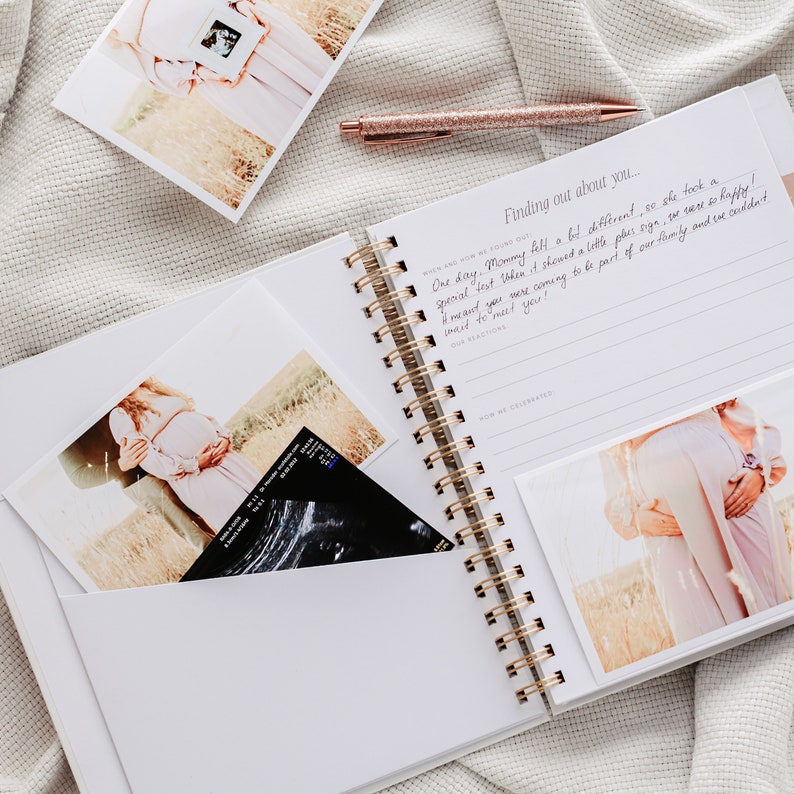 Finding out about you...
WHEN AND HOW WE FOUND OUT:
One day, Mommy felt a bit different, so she took a
special test. When it showed a little plus sign, we were so happy!
It meant you were coming to be part of our family and we couldn't
wait to meet you!
OUR REACTIONS:
HOW WE CELEBRATED: